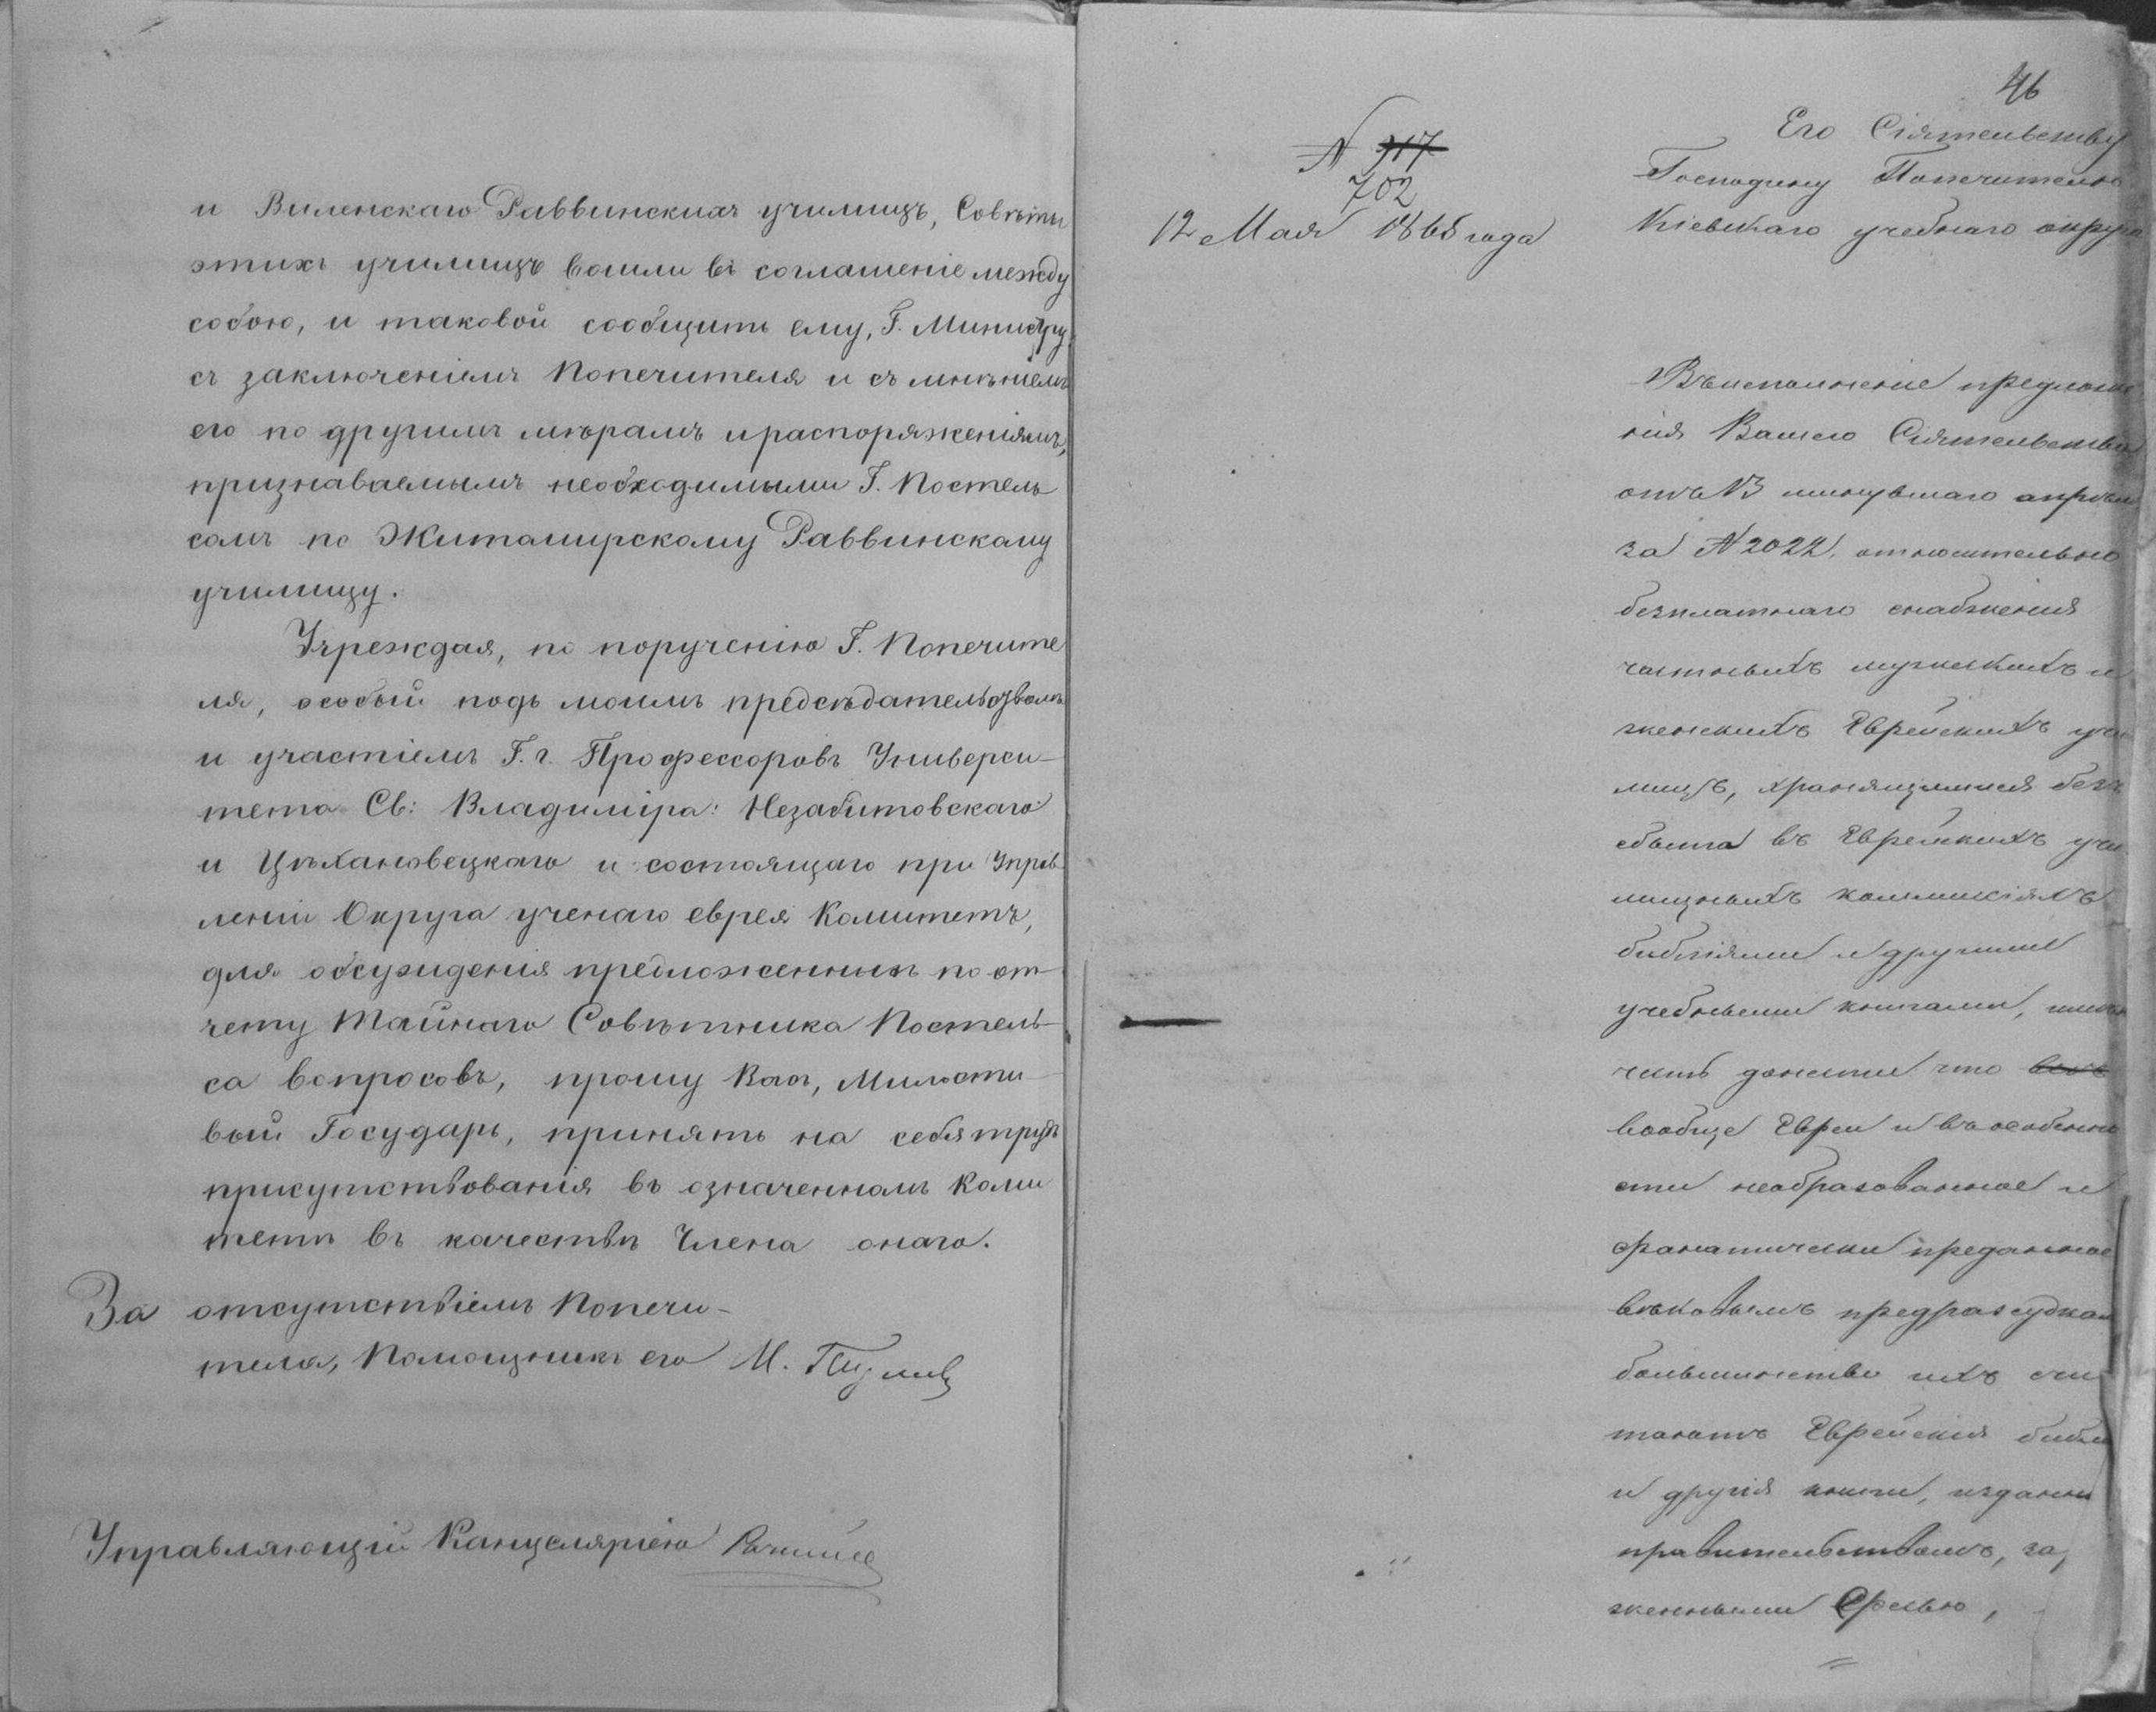 и Виленскаго Раввинскихъ училищъ, Совѣты
этихъ училищъ вошли въ соглашеніе между
собою, и таковой сообщить ему, Г. Министру,
съ заключеніемъ Попечителя и съ мнѣніемъ
его по другимъ мѣрамъ и распоряженіямъ,
признаваемымъ необходимыми Г. Постель
сомъ по Житомирскому Раввинскому
училищу.
Учреждая, по порученію Г. Попечите
ля, особый подъ моимъ предсѣдательствомъ
и участіемъ Г.г. Профессоровъ Универси-
тета Св: Владиміра: Незабитовскаго
и Цѣхановецкаго и состоящаго при Управ
леніи Округа ученаго еврея Комитетъ,
для обсужденія предложенныхъ по от-
чету Тайнаго Совѣтника Постель-
са вопросовъ, прошу Васъ, Милости-
вый Государь, принять на себя трудъ
присутствованія въ означенномъ Коми
тетѣ въ качествѣ Члена онаго.
За отсутствіемъ Попечи-
теля, Помощникъ его М.
Управляющій Канцеляріею
46
N 917
702
12 Мая 1865 года
Его Сіятельству
Господину Попечителю
Кіевскаго учебнаго округа
Въ исполненіе предложе
нія Вашего Сіятельства
отъ 13 минувшаго апрѣля
за N 2022, относительно
безплатнаго снабженія
частныхъ мужскихъ и
женскихъ Еврейскихъ учи
лищъ, хранящимися безъ
сбыта въ Еврейскихъ учи
лищныхъ коммисіяхъ
библіями и другими
учебными книгами, имѣю
честь донести что всѣ
вообще Евреи и въ особенно
сти необразованное и
фанатически преданное
вѣковымъ предразсудкам
большинство ихъ счи
таютъ Еврейскія библіи
и другія книги, изданныя
правительствомъ, за,
женными Ересью,